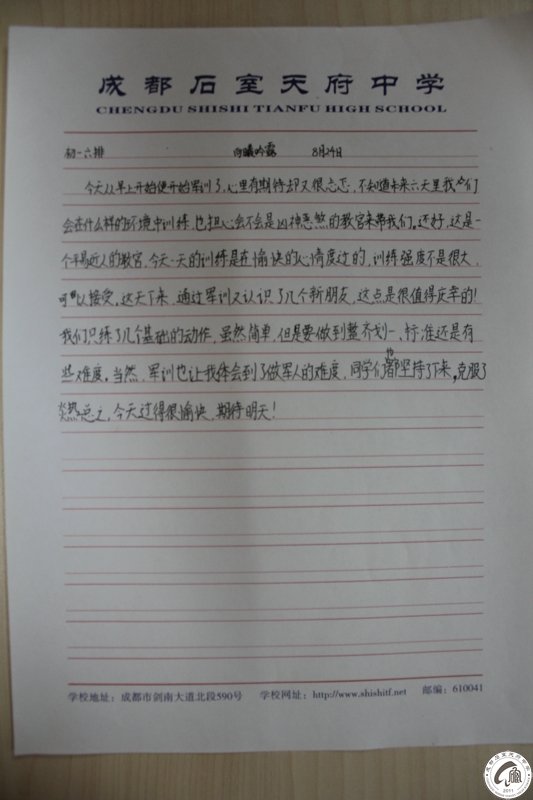 成都石室天府中学
CHENGDU SHISHI TIANFU HIGH SCHOOL
初一六排 向曦吟露 8月24日
今天从早上开始便开始军训了,心里有期待却又很忐忑,不知道未来六天里我们
会在什么样的环境中训练,也担心会不会是凶神恶煞的教官来带我们。还好,这是一
个平易近人的教官,今天一天的训练是在愉快的心情度过的,训练强度不是很大,
可以接受。这天下来,通过军训又认识了几个新朋友,这点是很值得庆幸的!
我们只练了几个基础的动作,虽然简单,但是要做到整齐划一、标准还是有
些难度。当然,军训也让我体会到了做军人的难度,同学们也都坚持了下来,克服了
炎热。总之,今天过得很愉快,期待明天!
学校地址:成都市剑南大道北段590号 学校网址:http://www.shishitf.net 邮编:610041
2011